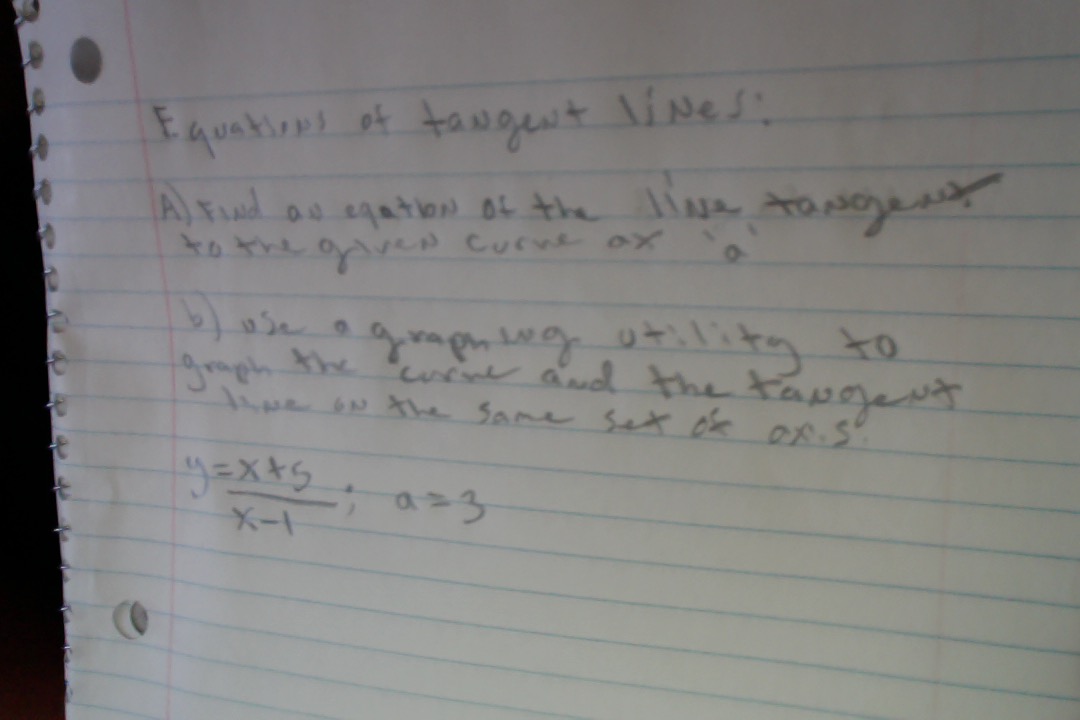 Equations of tangent lines:
A) Find an eqation of the line tangent
to the given curve ax 'a'
b) use a graphing utility to
graph the curve and the tangent
line on the same set of axis.
y = x+5
x-1 ; a=3